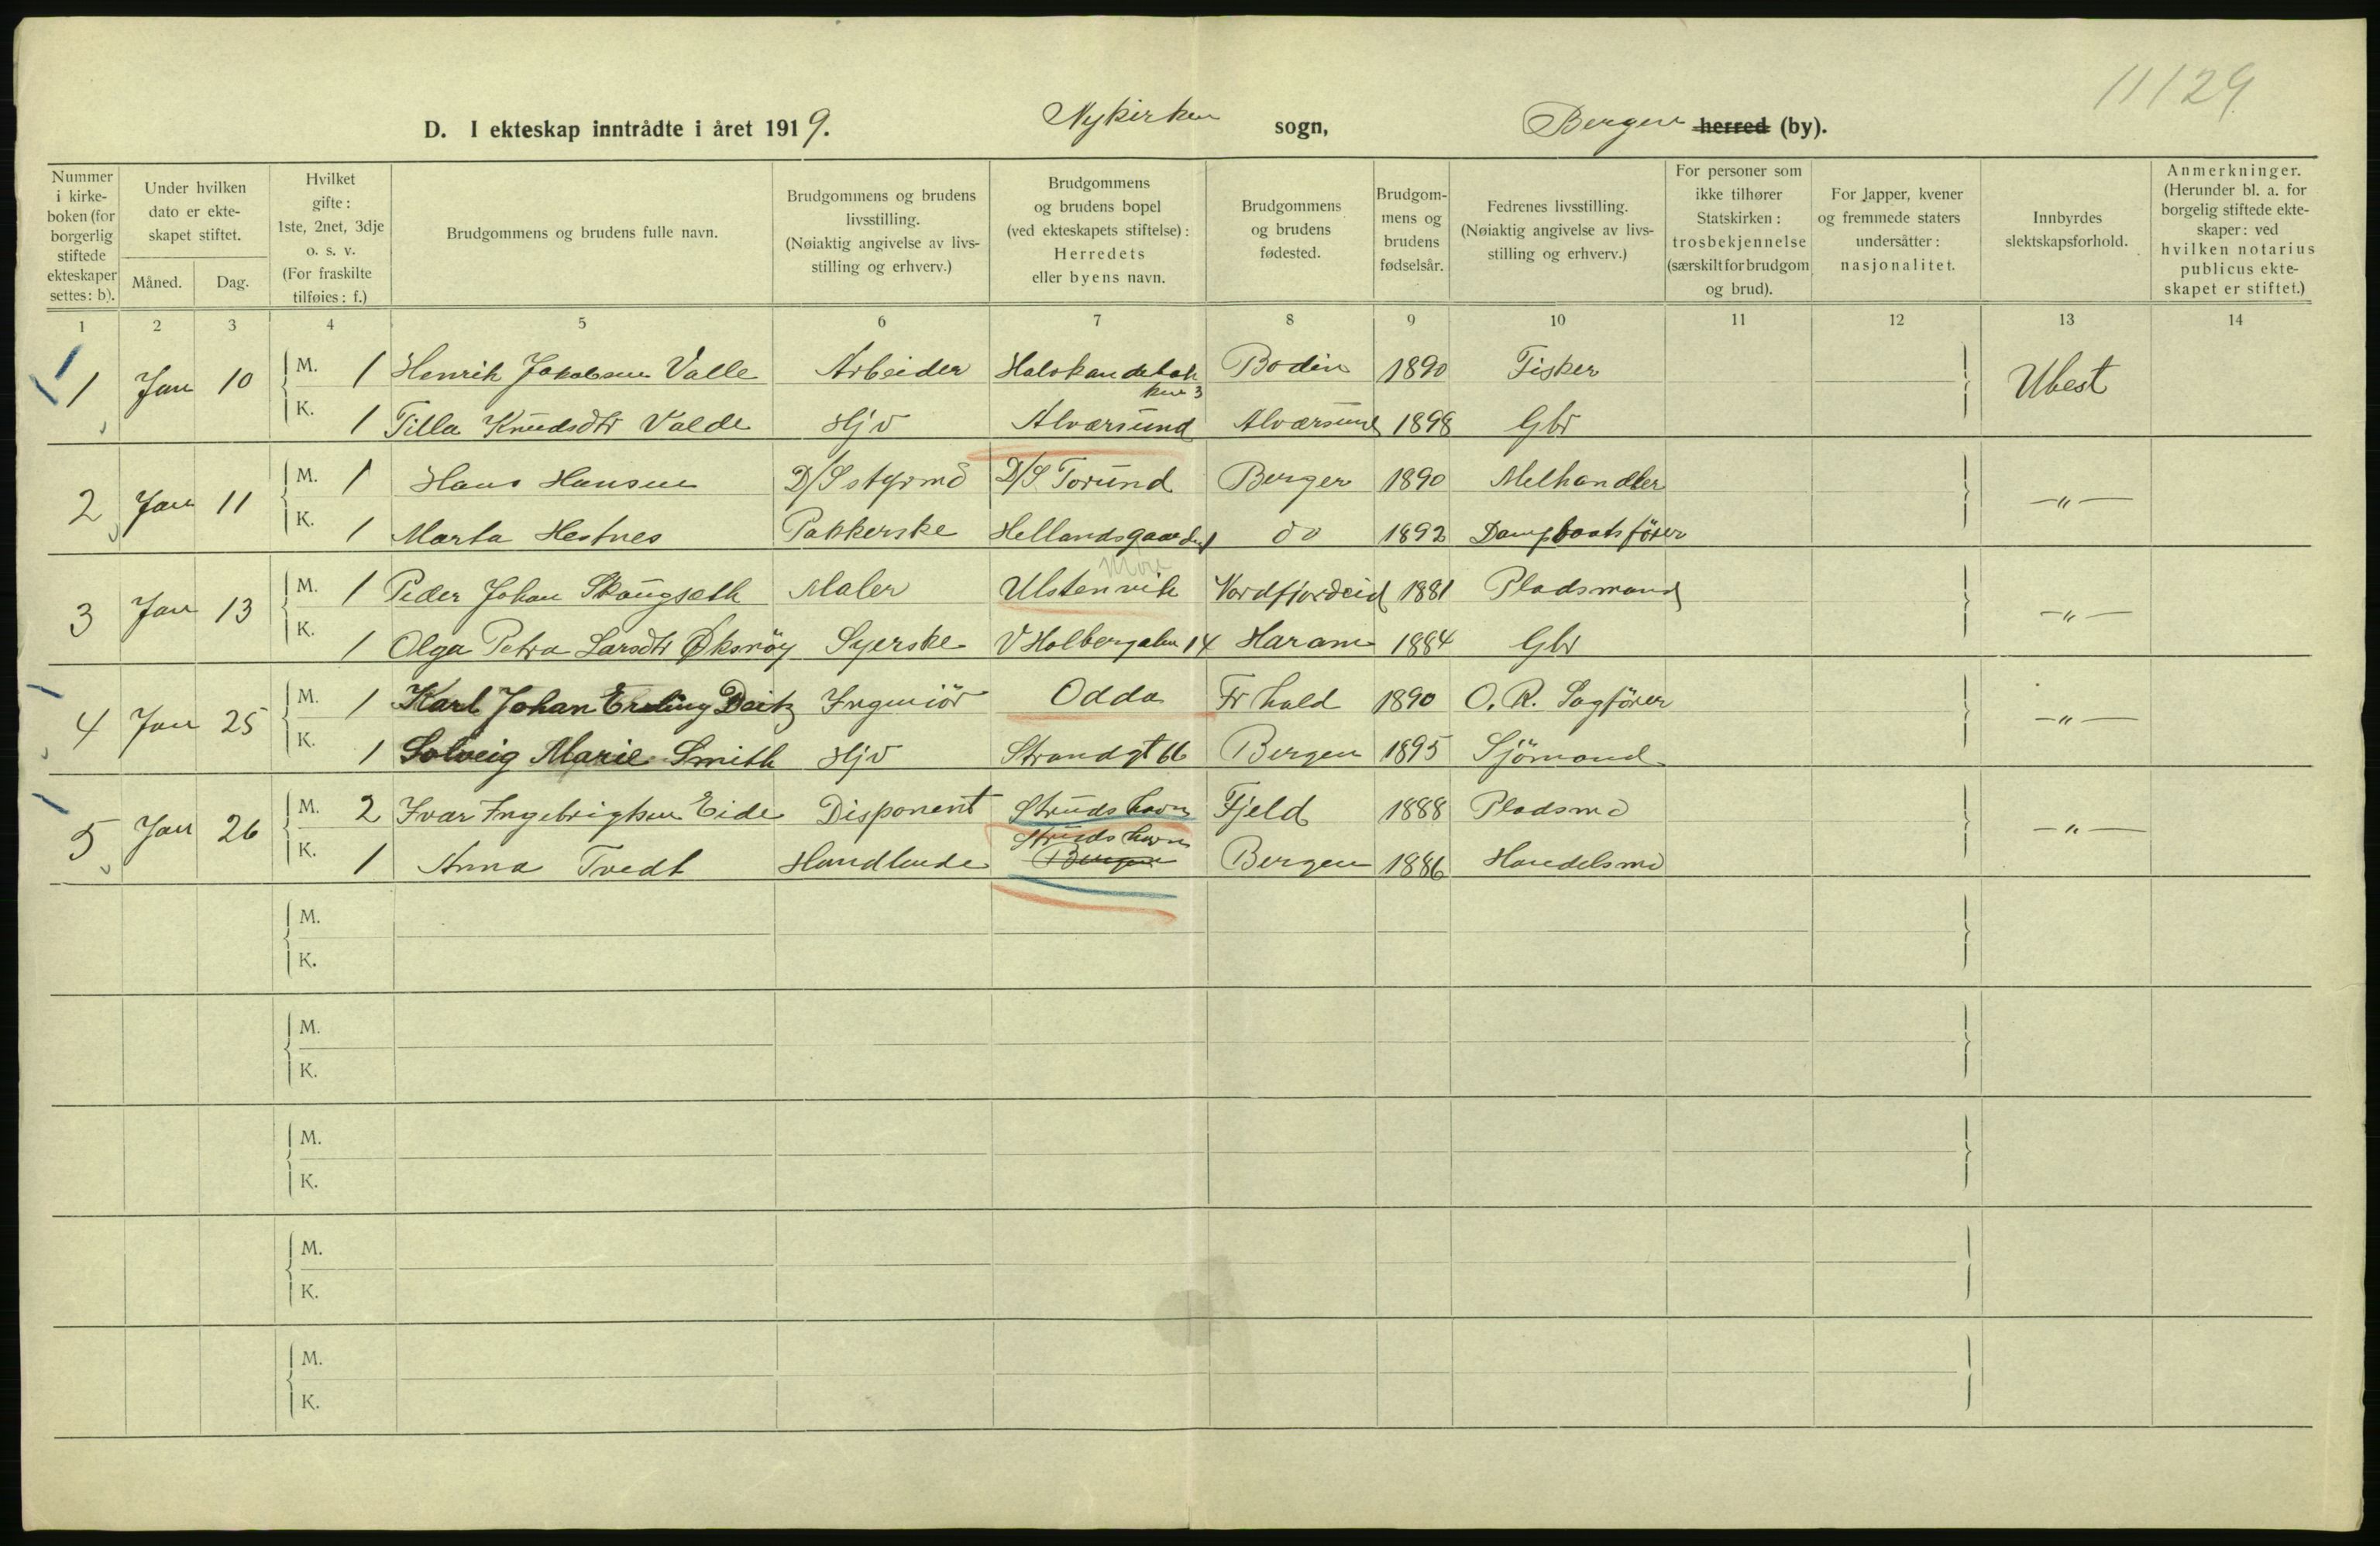 11129
D. I ekteskap inntrådte i året 1919. Nykirken sogn, Bergen herred (by).
Nummer i kirke-boken (for borgerlig stiftede ekteskaper settes: b).
Under hvilken dato er ekte-skapet stiftet.
Måned. Dag.
Hvilket gifte: 1ste, 2net, 3dje o. s. v. (For fraskilte tilføies: f.)
Brudgommens og brudens fulle navn.
Brudgommens og brudens livsstilling. (Nøiaktig angivelse av livs-stilling og erhverv.)
Brudgommens og brudens bopel (ved ekteskapets stiftelse): Herredets eller byens navn.
Brudgommens og brudens fødested.
Brudgom-mens og brudens fødselsår.
Fedrenes livsstilling. (Nøiaktig angivelse av livs-stilling og erhverv.)
For personer som ikke tilhører Statskirken: trosbekjennelse (særskilt for brudgom og brud).
For lapper, kvener og fremmede staters undersåtter: nasjonalitet.
Innbyrdes slektskapsforhold.
Anmerkninger. (Herunder bl. a. for borgelig stiftede ekte-skaper: ved hvilken notarius publicus ekte-skapet er stiftet.)
1 2 3 4 5 6 7 8 9 10 11 12 13 14
1 Jan 10 M. 1 Henrik Jakobsen Valle Arbeider Bodin 1890 Fisker Ubest
K. 1 Tilla Knudsdtr Valde Hjv Alværsund Alværsund 1898 Gbr
2 Jan 11 M. 1 Hans Hansen D/S styrmd D/S Torund Bergen 1890 Melhandler —"—
K. 1 Marta Hestnes Pakkerske Hellandsgaarden do 1892 Dampbaatsfører
3 Jan 13 M. 1 Peder Johan Skaugseth Maler Ulstenvik Nordfjordeid 1881 Pladsmand —"—
K. 1 Olga Petra Larsdtr Øksnøy Syerske V Holbergalm 14 Haram 1884 Gbr
4 Jan 25 M. 1 Karl Johan Erling Deitz Ingeniör Odda Fr hald 1890 O. R. Sagförer —"—
K. 1 Solveig Marie Smith Hjv Strandgt 66 Bergen 1895 Sjömand
5 Jan 26 M. 2 Ivar Ingebrigtsen Eide Disponent Strudshavn Fjeld 1888 Pladsmd —"—
Strudshavn
K. 1 Anna Tvedt Handlende Bergen Bergen 1886 Handelsmd
M.
K.
M.
K.
M.
K.
M.
K.
M.
K.